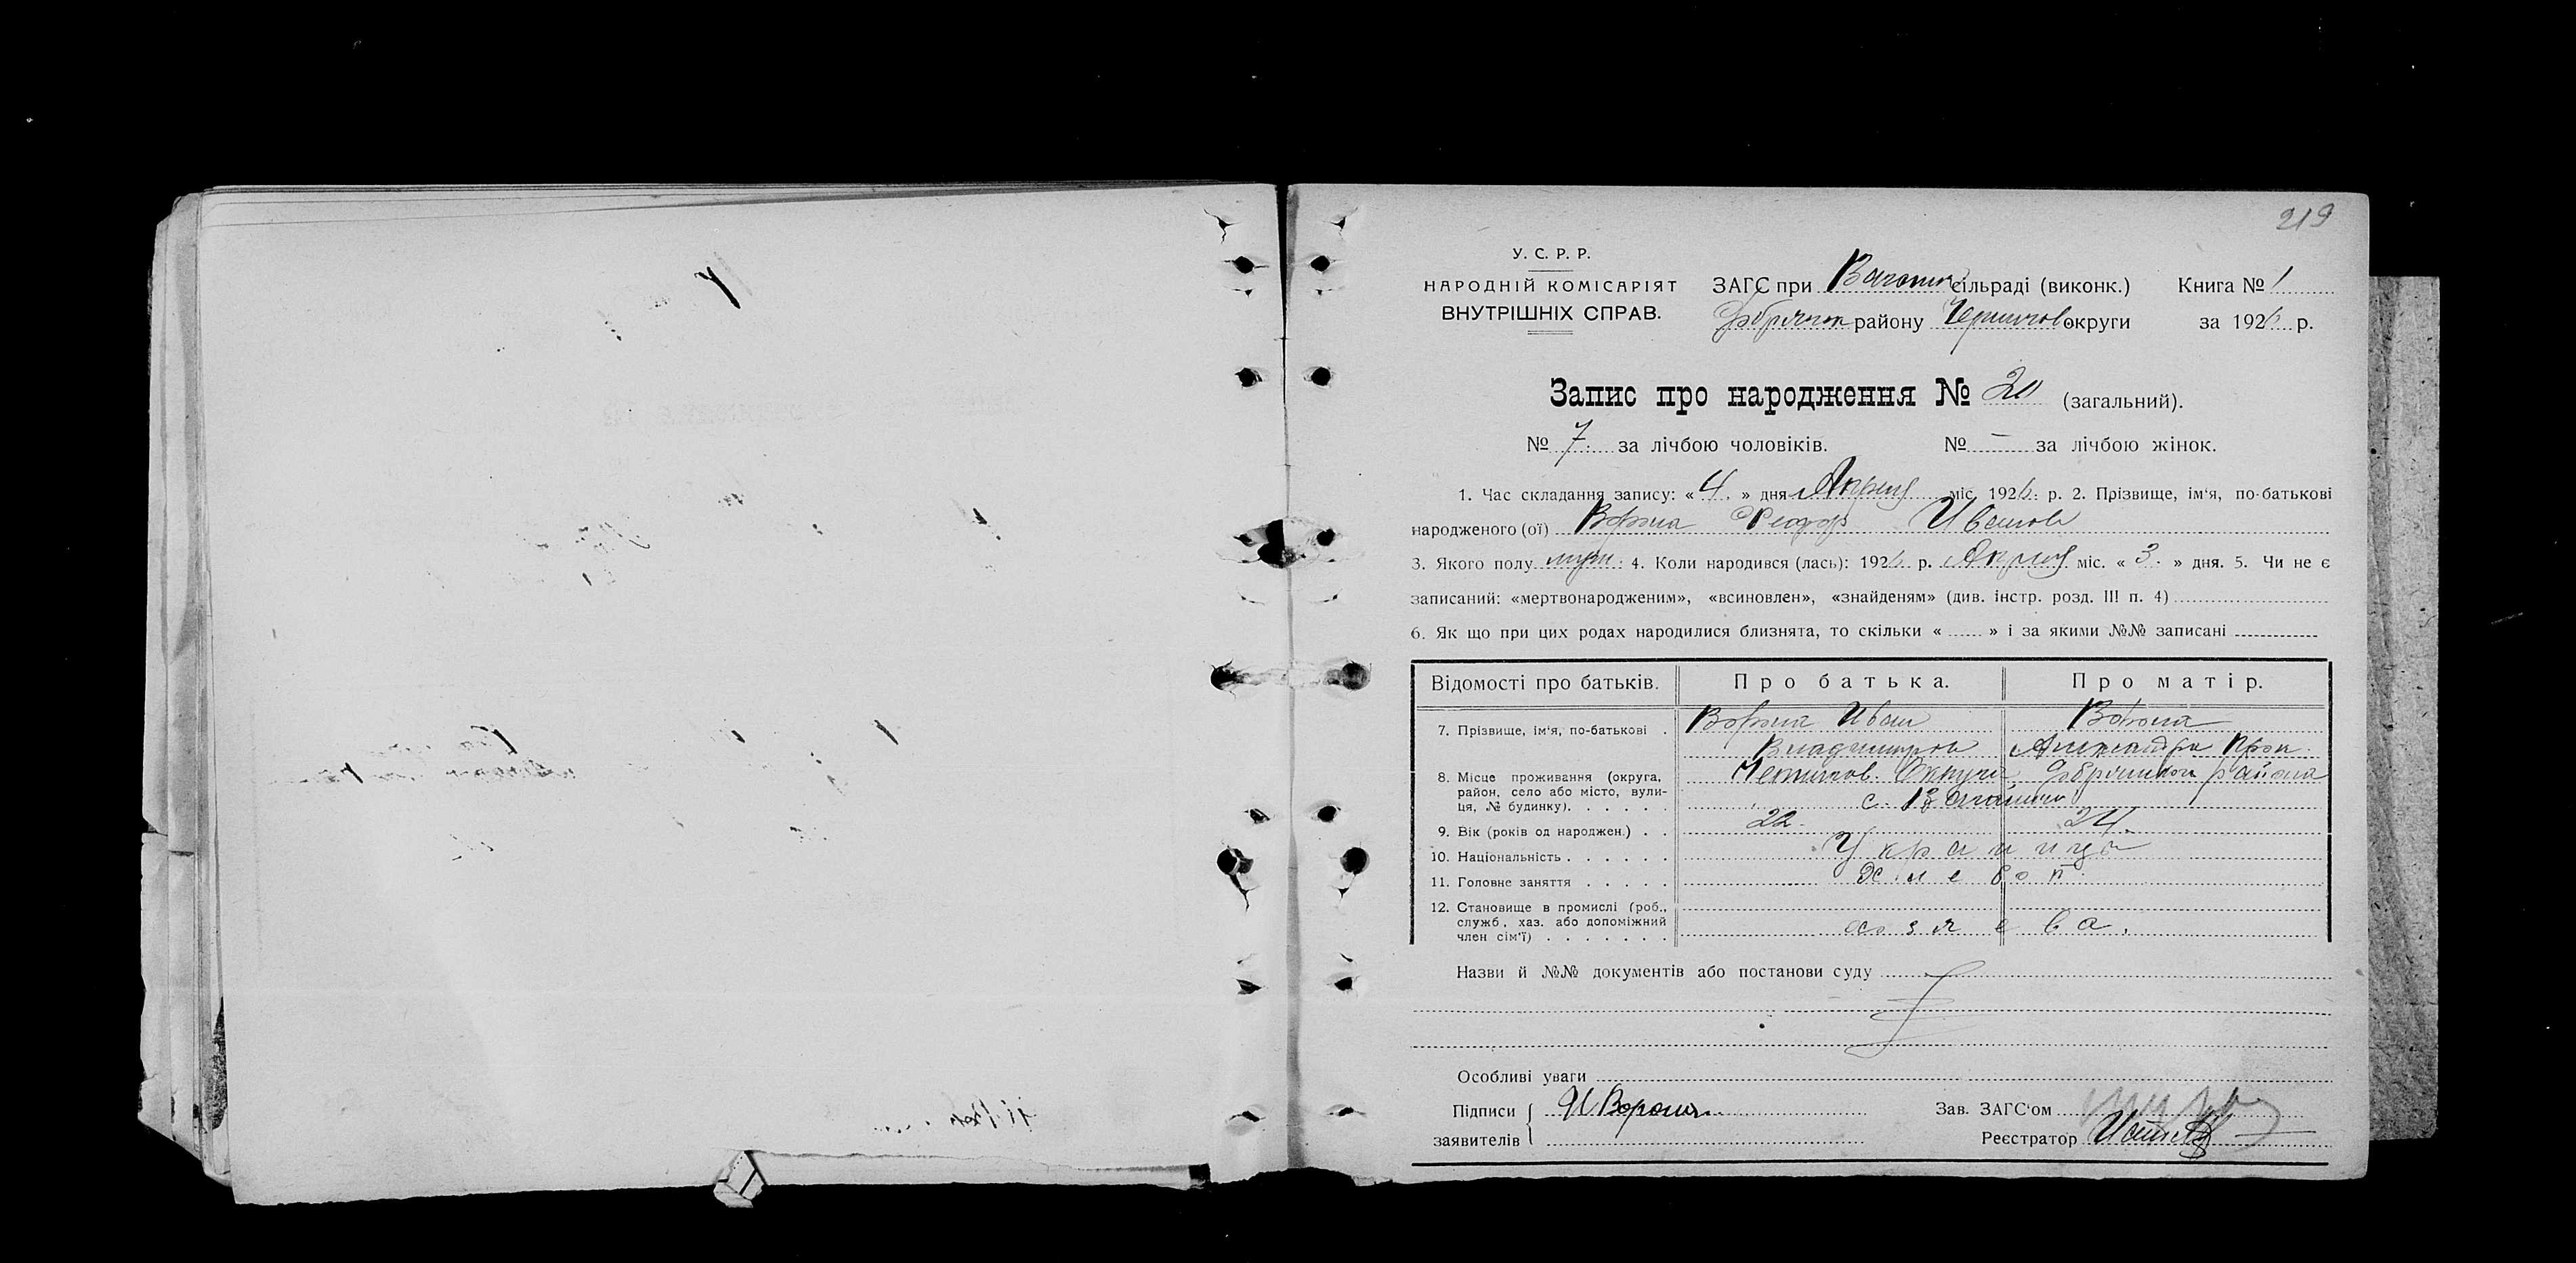 219
У. С. Р. Р.
НАРОДНІЙ КОМІСАРІЯТ
ВНУТРІШНІХ СПРАВ.
ЗАГС при сільраді (виконк.) Книга № 1
району Чернигов округи за 1926 р.
Запис про народження № 20 (загальний).
№ 7. за лічбою чоловіків. № — за лічбою жінок.
1. Час складання запису: « 4. » дня Апреля міс. 1926. р. 2. Прізвище, ім'я, по-батькові
народженого (ої) Ворона Феодор Иванов
3. Якого полу муж. 4. Коли народився (лась): 1926 р. Апреля міс. « 3. » дня. 5. Чи не є
записаний: «мертвонародженим», «всиновлен», «знайденям» (див. інстр. розд. III п. 4)
6. Як що при цих родах народилися близнята, то скільки « » і за якими №№ записані
Відомості про батьків. Про батька. Про матір.
7. Прізвище, ім'я, по-батькові . Ворона Иван Ворона
Владимиров Александра Прок.
8. Місце проживання (округа, район, село або місто, вулиця, № будинку). Округи района
с.
9. Вік (років од народжен.) . . 22. 24.
10. Національність . . . . . . Украинцы
11. Головне заняття . . . . . Хлебоп.
12. Становище в промислі (роб., служб., хаз. або допоміжний член сім'ї) . . . . . . . хозяева.
Назви й №№ документів або постанови суду
Особливі уваги
Підписи заявителів И Ворона
Зав. ЗАГС'ом
Реєстратор